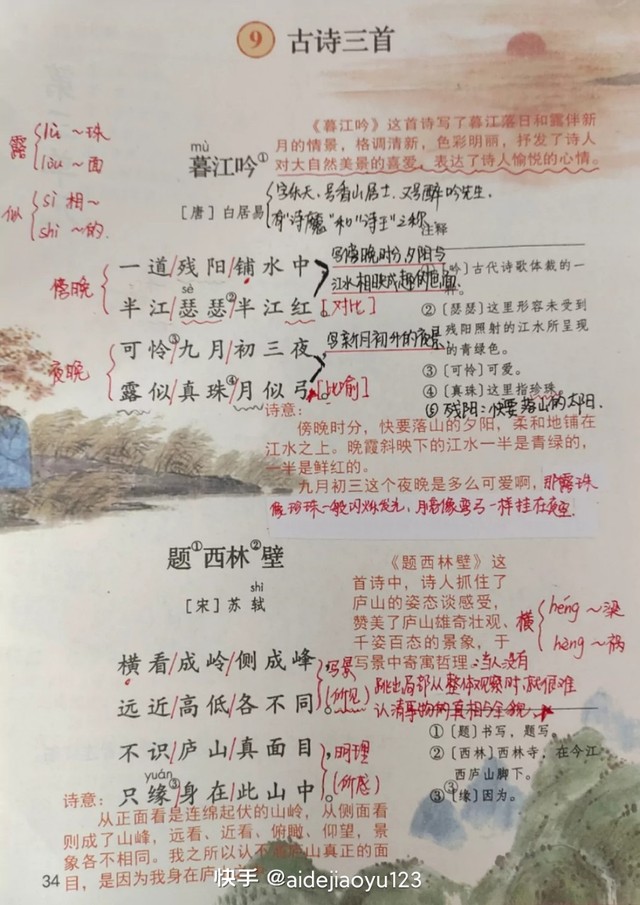 9 古诗三首
《暮江吟》这首诗写了暮江落日和露伴新
月的情景，格调清新，色彩明丽，抒发了诗人
对大自然美景的喜爱，表达了诗人愉悦的心情。
露
lù～珠
lòu～面
似
sì 相～
shì ～的
mù
暮江吟①
[唐] 白居易
字乐天，号香山居士，又号醉吟先生，
有“诗魔”和“诗王”之称
注释
傍晚
一道/残阳/铺水中
sè
半江/瑟瑟②/半江红
写傍晚时分夕阳与
江水相映成趣的画面
[对比]
夜晚
可怜③/九月/初三夜
露似/真珠④/月似弓。
写新月初升的夜景
[比喻]
吟〕古代诗歌体裁的一
②〔瑟瑟〕这里形容未受到
残阳照射的江水所呈现
的青绿色。
③〔可怜〕可爱。
④〔真珠〕这里指珍珠。
残阳：快要落山的太阳.
诗意：
傍晚时分，快要落山的夕阳，柔和地铺在
江水之上。晚霞斜映下的江水一半是青绿的，
一半是鲜红的。
九月初三这个夜晚是多么可爱啊，那露珠
像珍珠一般闪烁发光，月亮像弯弓一样挂在夜空
题①西林②壁
shì
[宋] 苏轼
《题西林壁》这
首诗中，诗人抓住了
庐山的姿态谈感受，
赞美了庐山雄奇壮观、
千姿百态的景象，于
写景中寄寓哲理：当人没有
跳出局部从整体观察时，就很难
认清事物的真相与全貌
横
héng ～梁
hèng ～祸
横看/成岭/侧成峰，
远近/高低/各不同。
写景
(所见)
不识/庐山/真面目，
yuán
只缘③/身在/此山中。
明理
(所感)
①〔题〕书写，题写。
②〔西林〕西林寺，在今江
西庐山脚下。
③〔缘〕因为。
诗意：
从正面看是连绵起伏的山岭，从侧面看
则成了山峰，远看、近看、俯瞰、仰望，景
象各不相同。我之所以认不
山真正的面
目，是因为我身在庐
34
快手 @aidejiaoyu123